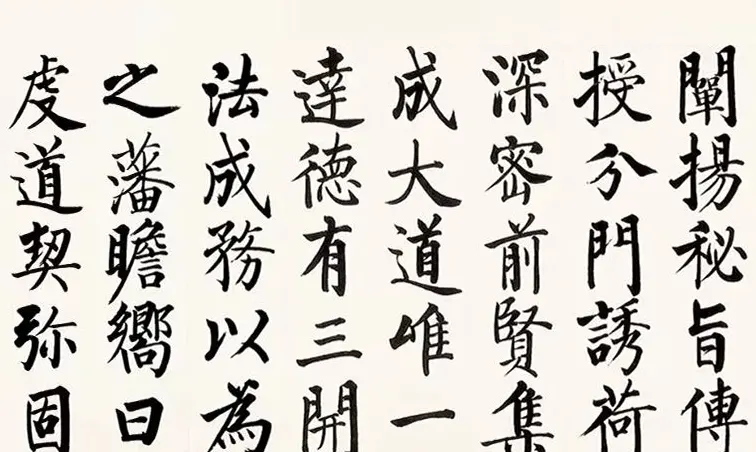 闡揚秘旨傳
授分門誘荷
深密前賢集
成大道唯一
達德有三開
法成務以為
之藩瞻嚮日
虔道契弥固